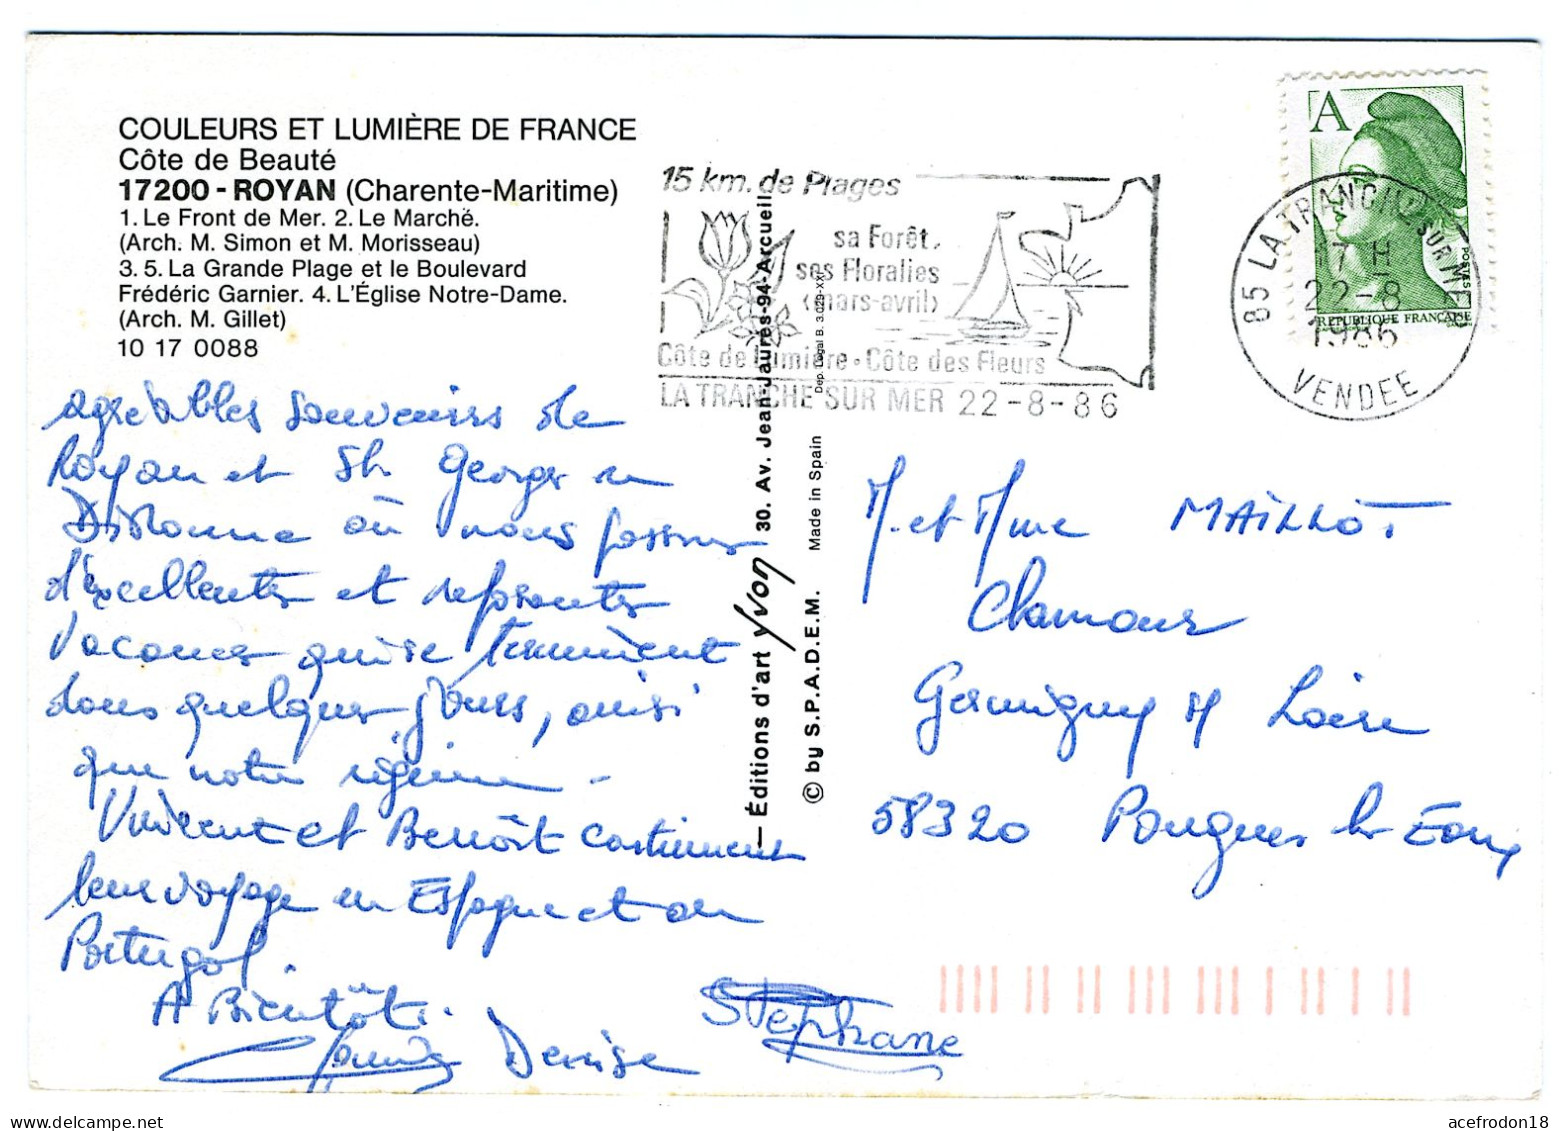 COULEURS ET LUMIÈRE DE FRANCE
Côte de Beauté
17200 - ROYAN (Charente-Maritime)
1. Le Front de Mer. 2. Le Marché.
(Arch. M. Simon et M. Morisseau)
3. 5. La Grande Plage et le Boulevard
Frédéric Garnier. 4. L'Église Notre-Dame.
(Arch. M. Gillet)
10 17 0088
agréables souvenirs de
Royan et St. Georges
Didonne où nous passons
d'excellentes et reposantes
vacances qui se terminent
dans quelques jours, ainsi
que notre régime -
Vincent et Benoît continuent
leur voyage en Espagne et au
Portugal.
A Bientôt.
Denise
Stéphane
15 km. de Plages
sa Forêt.
ses Floralies
(mars-avril)
Côte de Lumière - Côte des Fleurs
LA TRANCHE SUR MER 22-8-86
— Éditions d'art Yvon 30. Av. Jean-Jaurès-94-Arcueil
© by S.P.A.D.E.M. Made in Spain Dep. Légal B. 3.029-XX
A
POSTES
REPUBLIQUE FRANÇAISE
85 LA TRANCHE SUR MER
17 H
22-8
1986
VENDEE
M. et Mme MAILLOT
Chamour
Germigny s/ Loire
58320 Pougues les Eaux
acefrodon18